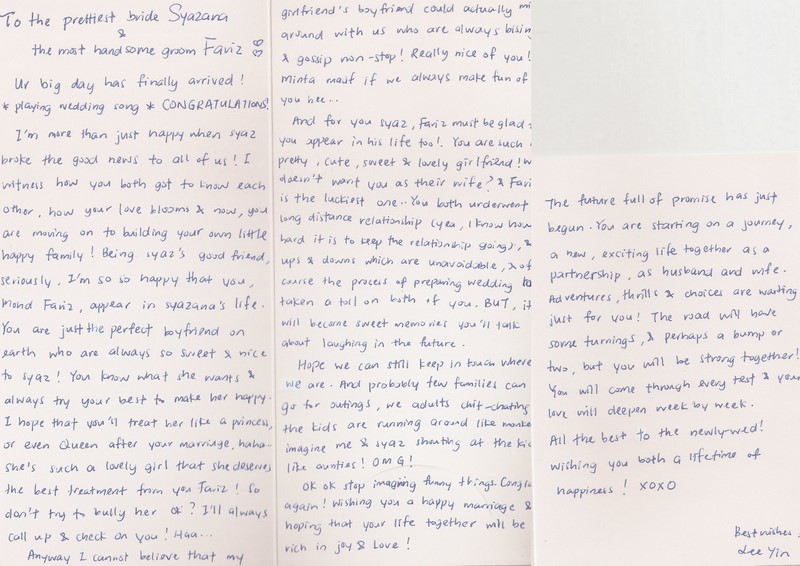 To the prettiest bride Syazana
&
the most handsome groom Fariz
Ur big day has finally arrived!
* playing wedding song * CONGRATULATIONS!
I'm more than just happy when syaz
broke the good news to all of us! I
witness how you both got to know each
other, how your love blooms & now, you
are moving on to building your own little
happy family! Being syaz's good friend,
seriously, I'm so so happy that you,
Mohd Fariz, appear in syazana's life.
You are just the perfect boyfriend on
earth who are always so sweet & nice
to syaz! You know what she wants &
always try your best to make her happy.
I hope that you'll treat her like a princess,
or even Queen after your marriage, haha..
she's such a lovely girl that she deserves
the best treatment from you Fariz! So
don't try to bully her ok? I'll always
call up & check on you! Haa...
Anyway I cannot believe that my
girlfriend's boyfriend could actually mi
around with us who are always bisin
& gossip non-stop! Really nice of you!
minta maaf if we always make fun of
you hee..
And for you syaz, Fariz must be glad
you appear in his life too!. You are such
pretty, cute, sweet & lovely girlfriend! w
doesn't want you as their wife? & Fari
is the luckiest one.. You both underwent
long distance relationship (yea, I know how
hard it is to keep the relationship going), &
ups & downs which are unavoidable, & of
course the process of preparing wedding
taken a toll on both of you. BUT, it
will become sweet memories you'll talk
about laughing in the future.
Hope we can still keep in touch where
we are. And probably few families can
go for outings, we adults chit-chating
the kids are running around like monke
imagine me & syaz shouting at the kid
like aunties! OMG!
OK ok stop imaging funny things. Congra
again! Wishing you a happy marriage &
hoping that your life together will be
rich in joy & Love!
The future full of promise has just
begun. You are starting on a journey,
a new, exciting life together as a
partnership, as husband and wife.
Adventures, thrills & choices are waiting
just for you! The road will have
some turnings, & perhaps a bump or
two, but you will be strong together!
You will come through every test & your
love will deepen week by week.
All the best to the newly-wed!
wishing you both a lifetime of
happiness! XOXO
Best wishes,
Lee Yin